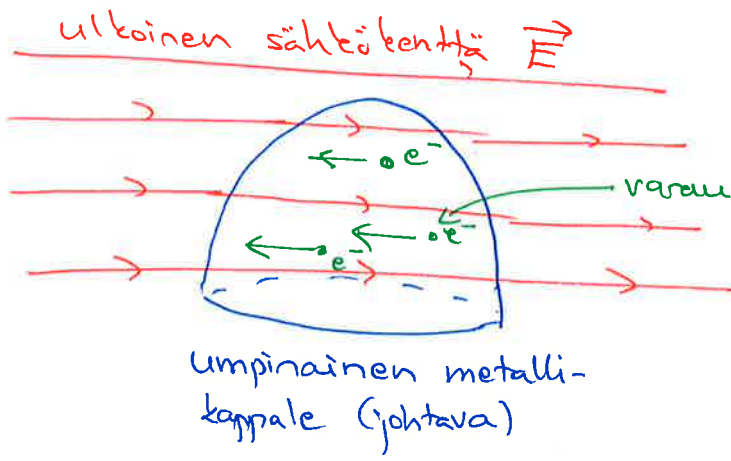 ulkoinen sähkökenttä E
e⁻
varau
e⁻
e⁻
umpinainen metalli-
kappale (johtava)